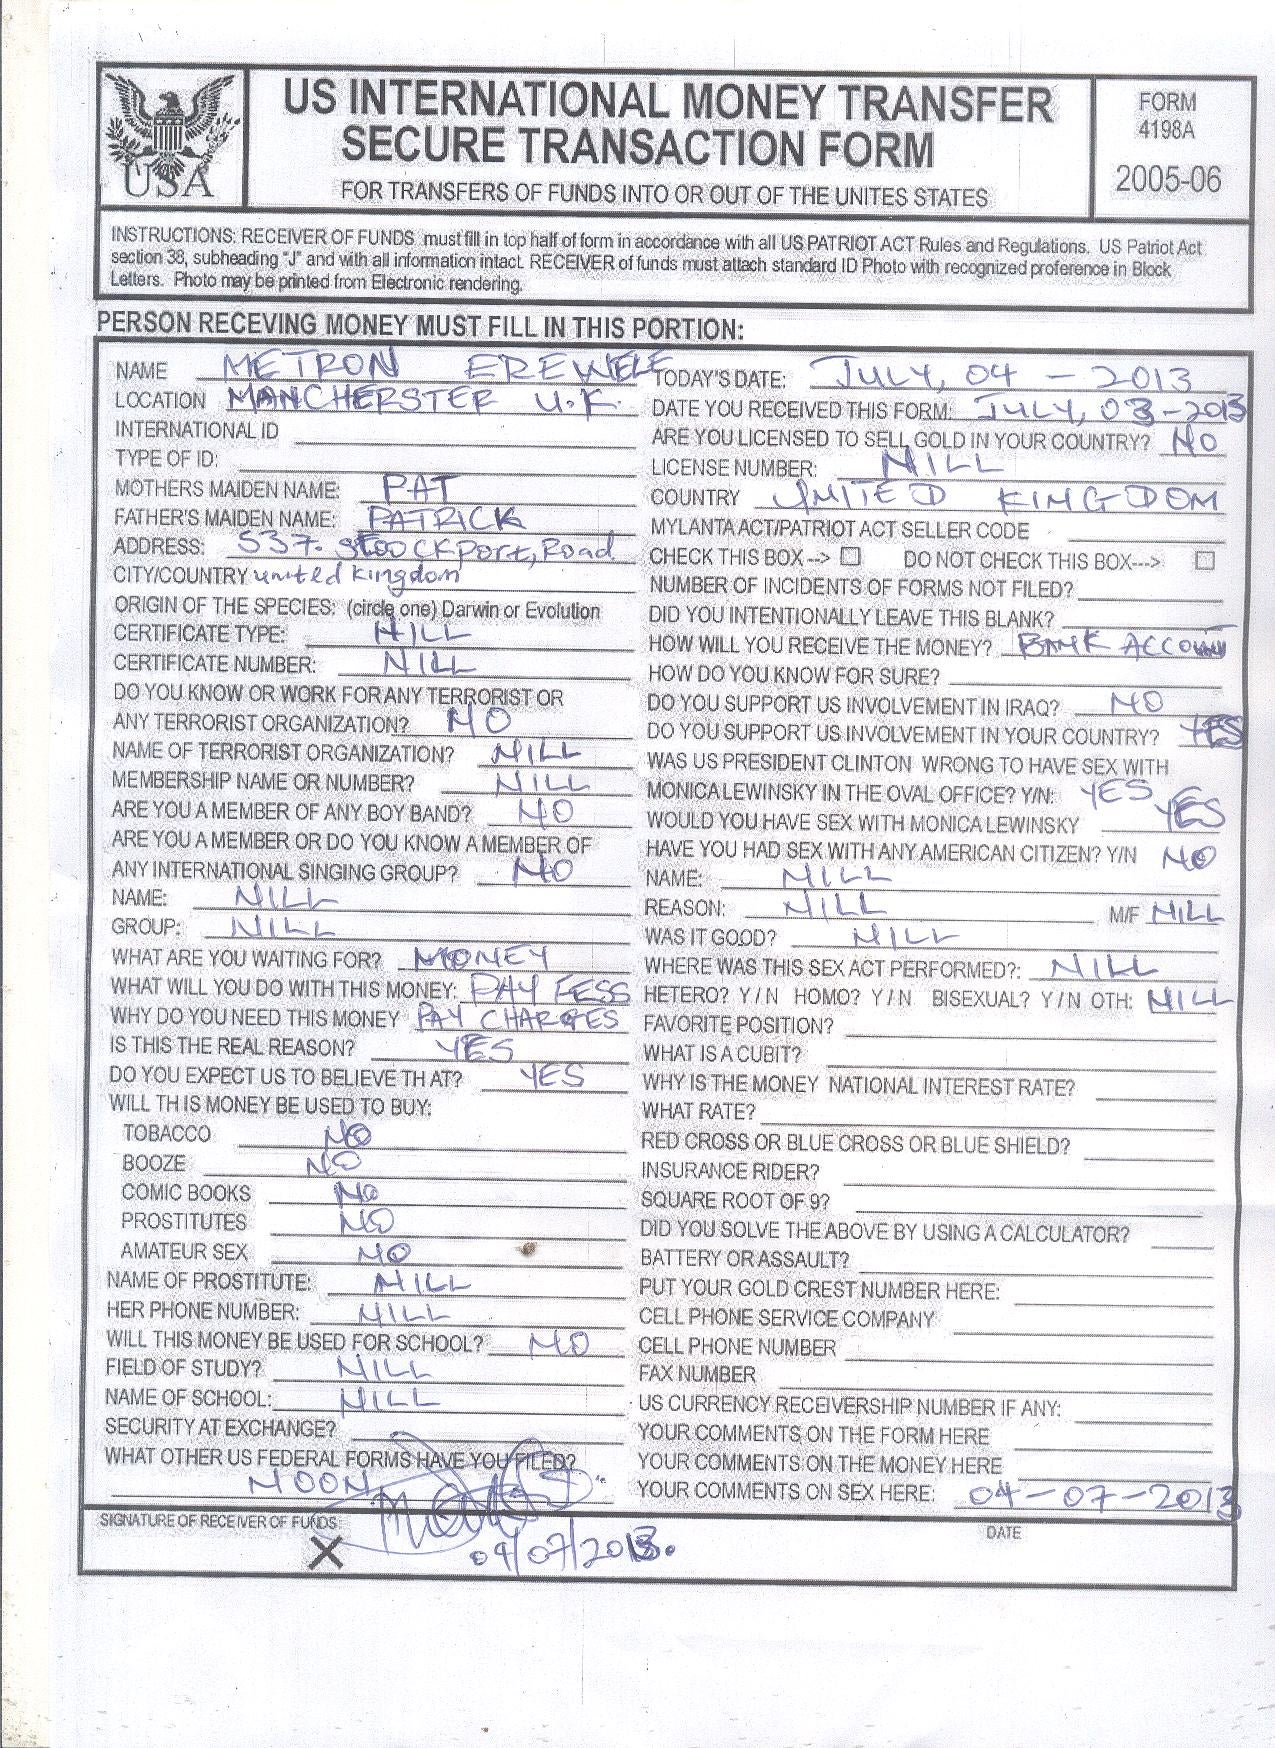 USA
US INTERNATIONAL MONEY TRANSFER
SECURE TRANSACTION FORM
FOR TRANSFERS OF FUNDS INTO OR OUT OF THE UNITES STATES
FORM
4198A
2005-06
INSTRUCTIONS: RECEIVER OF FUNDS must fill in top half of form in accordance with all US PATRIOT ACT Rules and Regulations. US Patriot Act
section 38, subheading "J" and with all information intact. RECEIVER of funds must attach standard ID Photo with recognized proference in Block
Letters. Photo may be printed from Electronic rendering.
PERSON RECEVING MONEY MUST FILL IN THIS PORTION:
NAME METRON EREWELE
LOCATION MANCHERSTER U.K.
INTERNATIONAL ID
TYPE OF ID:
MOTHERS MAIDEN NAME: PAT
FATHER'S MAIDEN NAME: PATRICK
ADDRESS: 537. stoockport, Road
CITY/COUNTRY united kingdom
ORIGIN OF THE SPECIES: (circle one) Darwin or Evolution
CERTIFICATE TYPE: NILL
CERTIFICATE NUMBER: NILL
DO YOU KNOW OR WORK FOR ANY TERRORIST OR
ANY TERRORIST ORGANIZATION? NO
NAME OF TERRORIST ORGANIZATION? NILL
MEMBERSHIP NAME OR NUMBER? NILL
ARE YOU A MEMBER OF ANY BOY BAND? NO
ARE YOU A MEMBER OR DO YOU KNOW A MEMBER OF
ANY INTERNATIONAL SINGING GROUP? NO
NAME: NILL
GROUP: NILL
WHAT ARE YOU WAITING FOR? MONEY
WHAT WILL YOU DO WITH THIS MONEY: PAY FESS
WHY DO YOU NEED THIS MONEY PAY CHARGES
IS THIS THE REAL REASON? YES
DO YOU EXPECT US TO BELIEVE TH AT? YES
WILL TH IS MONEY BE USED TO BUY:
TOBACCO NO
BOOZE NO
COMIC BOOKS NO
PROSTITUTES NO
AMATEUR SEX NO
NAME OF PROSTITUTE: NILL
HER PHONE NUMBER: NILL
WILL THIS MONEY BE USED FOR SCHOOL? NO
FIELD OF STUDY? NILL
NAME OF SCHOOL: NILL
SECURITY AT EXCHANGE?
WHAT OTHER US FEDERAL FORMS HAVE YOU FILED?
NOON
TODAY'S DATE: JULY, 04 - 2013
DATE YOU RECEIVED THIS FORM: JULY, 03-2013
ARE YOU LICENSED TO SELL GOLD IN YOUR COUNTRY? NO
LICENSE NUMBER: NILL
COUNTRY UNITED KINGDOM
MYLANTA ACT/PATRIOT ACT SELLER CODE
CHECK THIS BOX --> DO NOT CHECK THIS BOX--->
NUMBER OF INCIDENTS OF FORMS NOT FILED?
DID YOU INTENTIONALLY LEAVE THIS BLANK?
HOW WILL YOU RECEIVE THE MONEY? BANK ACCOUNT
HOW DO YOU KNOW FOR SURE?
DO YOU SUPPORT US INVOLVEMENT IN IRAQ? NO
DO YOU SUPPORT US INVOLVEMENT IN YOUR COUNTRY? YES
WAS US PRESIDENT CLINTON WRONG TO HAVE SEX WITH
MONICA LEWINSKY IN THE OVAL OFFICE? Y/N: YES
WOULD YOU HAVE SEX WITH MONICA LEWINSKY YES
HAVE YOU HAD SEX WITH ANY AMERICAN CITIZEN? Y/N NO
NAME: NILL
REASON: NILL M/F NILL
WAS IT GOOD? NILL
WHERE WAS THIS SEX ACT PERFORMED?: NILL
HETERO? Y / N HOMO? Y / N BISEXUAL? Y / N OTH: NILL
FAVORITE POSITION?
WHAT IS A CUBIT?
WHY IS THE MONEY NATIONAL INTEREST RATE?
WHAT RATE?
RED CROSS OR BLUE CROSS OR BLUE SHIELD?
INSURANCE RIDER?
SQUARE ROOT OF 9?
DID YOU SOLVE THE ABOVE BY USING A CALCULATOR?
BATTERY OR ASSAULT?
PUT YOUR GOLD CREST NUMBER HERE:
CELL PHONE SERVICE COMPANY
CELL PHONE NUMBER
FAX NUMBER
US CURRENCY RECEIVERSHIP NUMBER IF ANY:
YOUR COMMENTS ON THE FORM HERE
YOUR COMMENTS ON THE MONEY HERE
YOUR COMMENTS ON SEX HERE: 04-07-2013
SIGNATURE OF RECEIVER OF FUNDS:
X
04/07/2013.
DATE